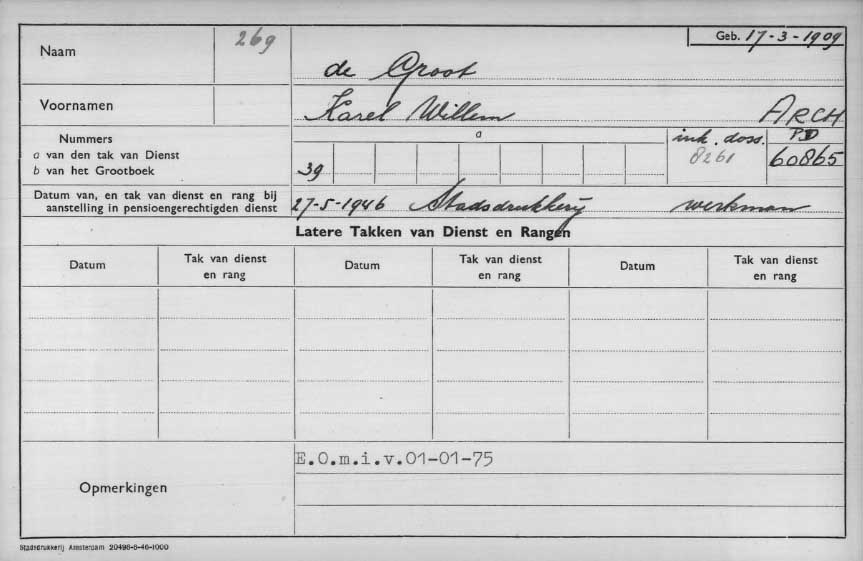 Naam 269 Geb. 17-3-1909
de Groot
Voornamen Karel Willem ARCH
Nummers a ink. doss. PD
a van den tak van Dienst 8261 60865
b van het Grootboek 39
Datum van, en tak van dienst en rang bij
aanstelling in pensioengerechtigden dienst 27-5-1946 Stadsdrukkerij werkman
Latere Takken van Dienst en Rangen
Datum Tak van dienst Datum Tak van dienst Datum Tak van dienst
en rang en rang en rang
E.O.m.i.v.01-01-75
Opmerkingen
Stadsdrukkerij Amsterdam 20498-8-46-1000